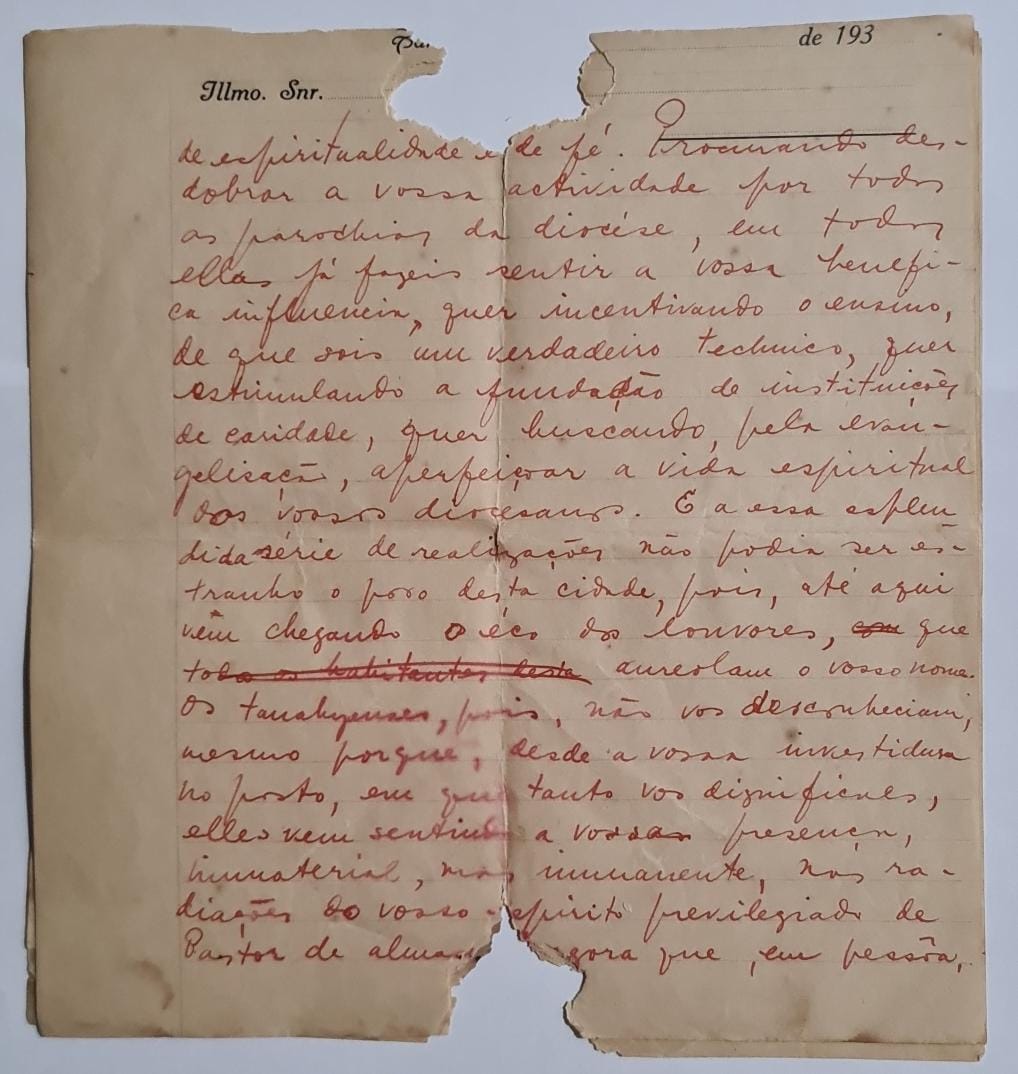 de 193
Illmo. Snr.
de espiritualidade e de fé. Procurando des-
dobrar a vossa actividade por todas
as parochias da diocése, em todas
ellas já fazeis sentir a vossa benefi-
ca influencia, quer incentivando o ensino,
de que sois um verdadeiro technico, quer
estimulando a fundação de instituições
de caridade, quer buscando, pela evan-
gelisação, aperfeiçoar a vida espiritual
dos vossos diocesanos. E a essa esplen
dida série de realizações não podia ser es-
tranho o povo desta cidade, pois, até aqui
vêm chegando o éco dos louvores, com que
todo os habitantes desta aureolam o vosso nome.
Os tanabyenses, pois, não vos desconheciam,
mesmo porque, desde a vossa investidura
no posto, em que tanto vos dignificaes,
elles vem sentindo a vossa presença,
immaterial, mas immanente, nas ra-
diações do vosso espirito previlegiado de
Pastor de almas gora que, em pessôa,